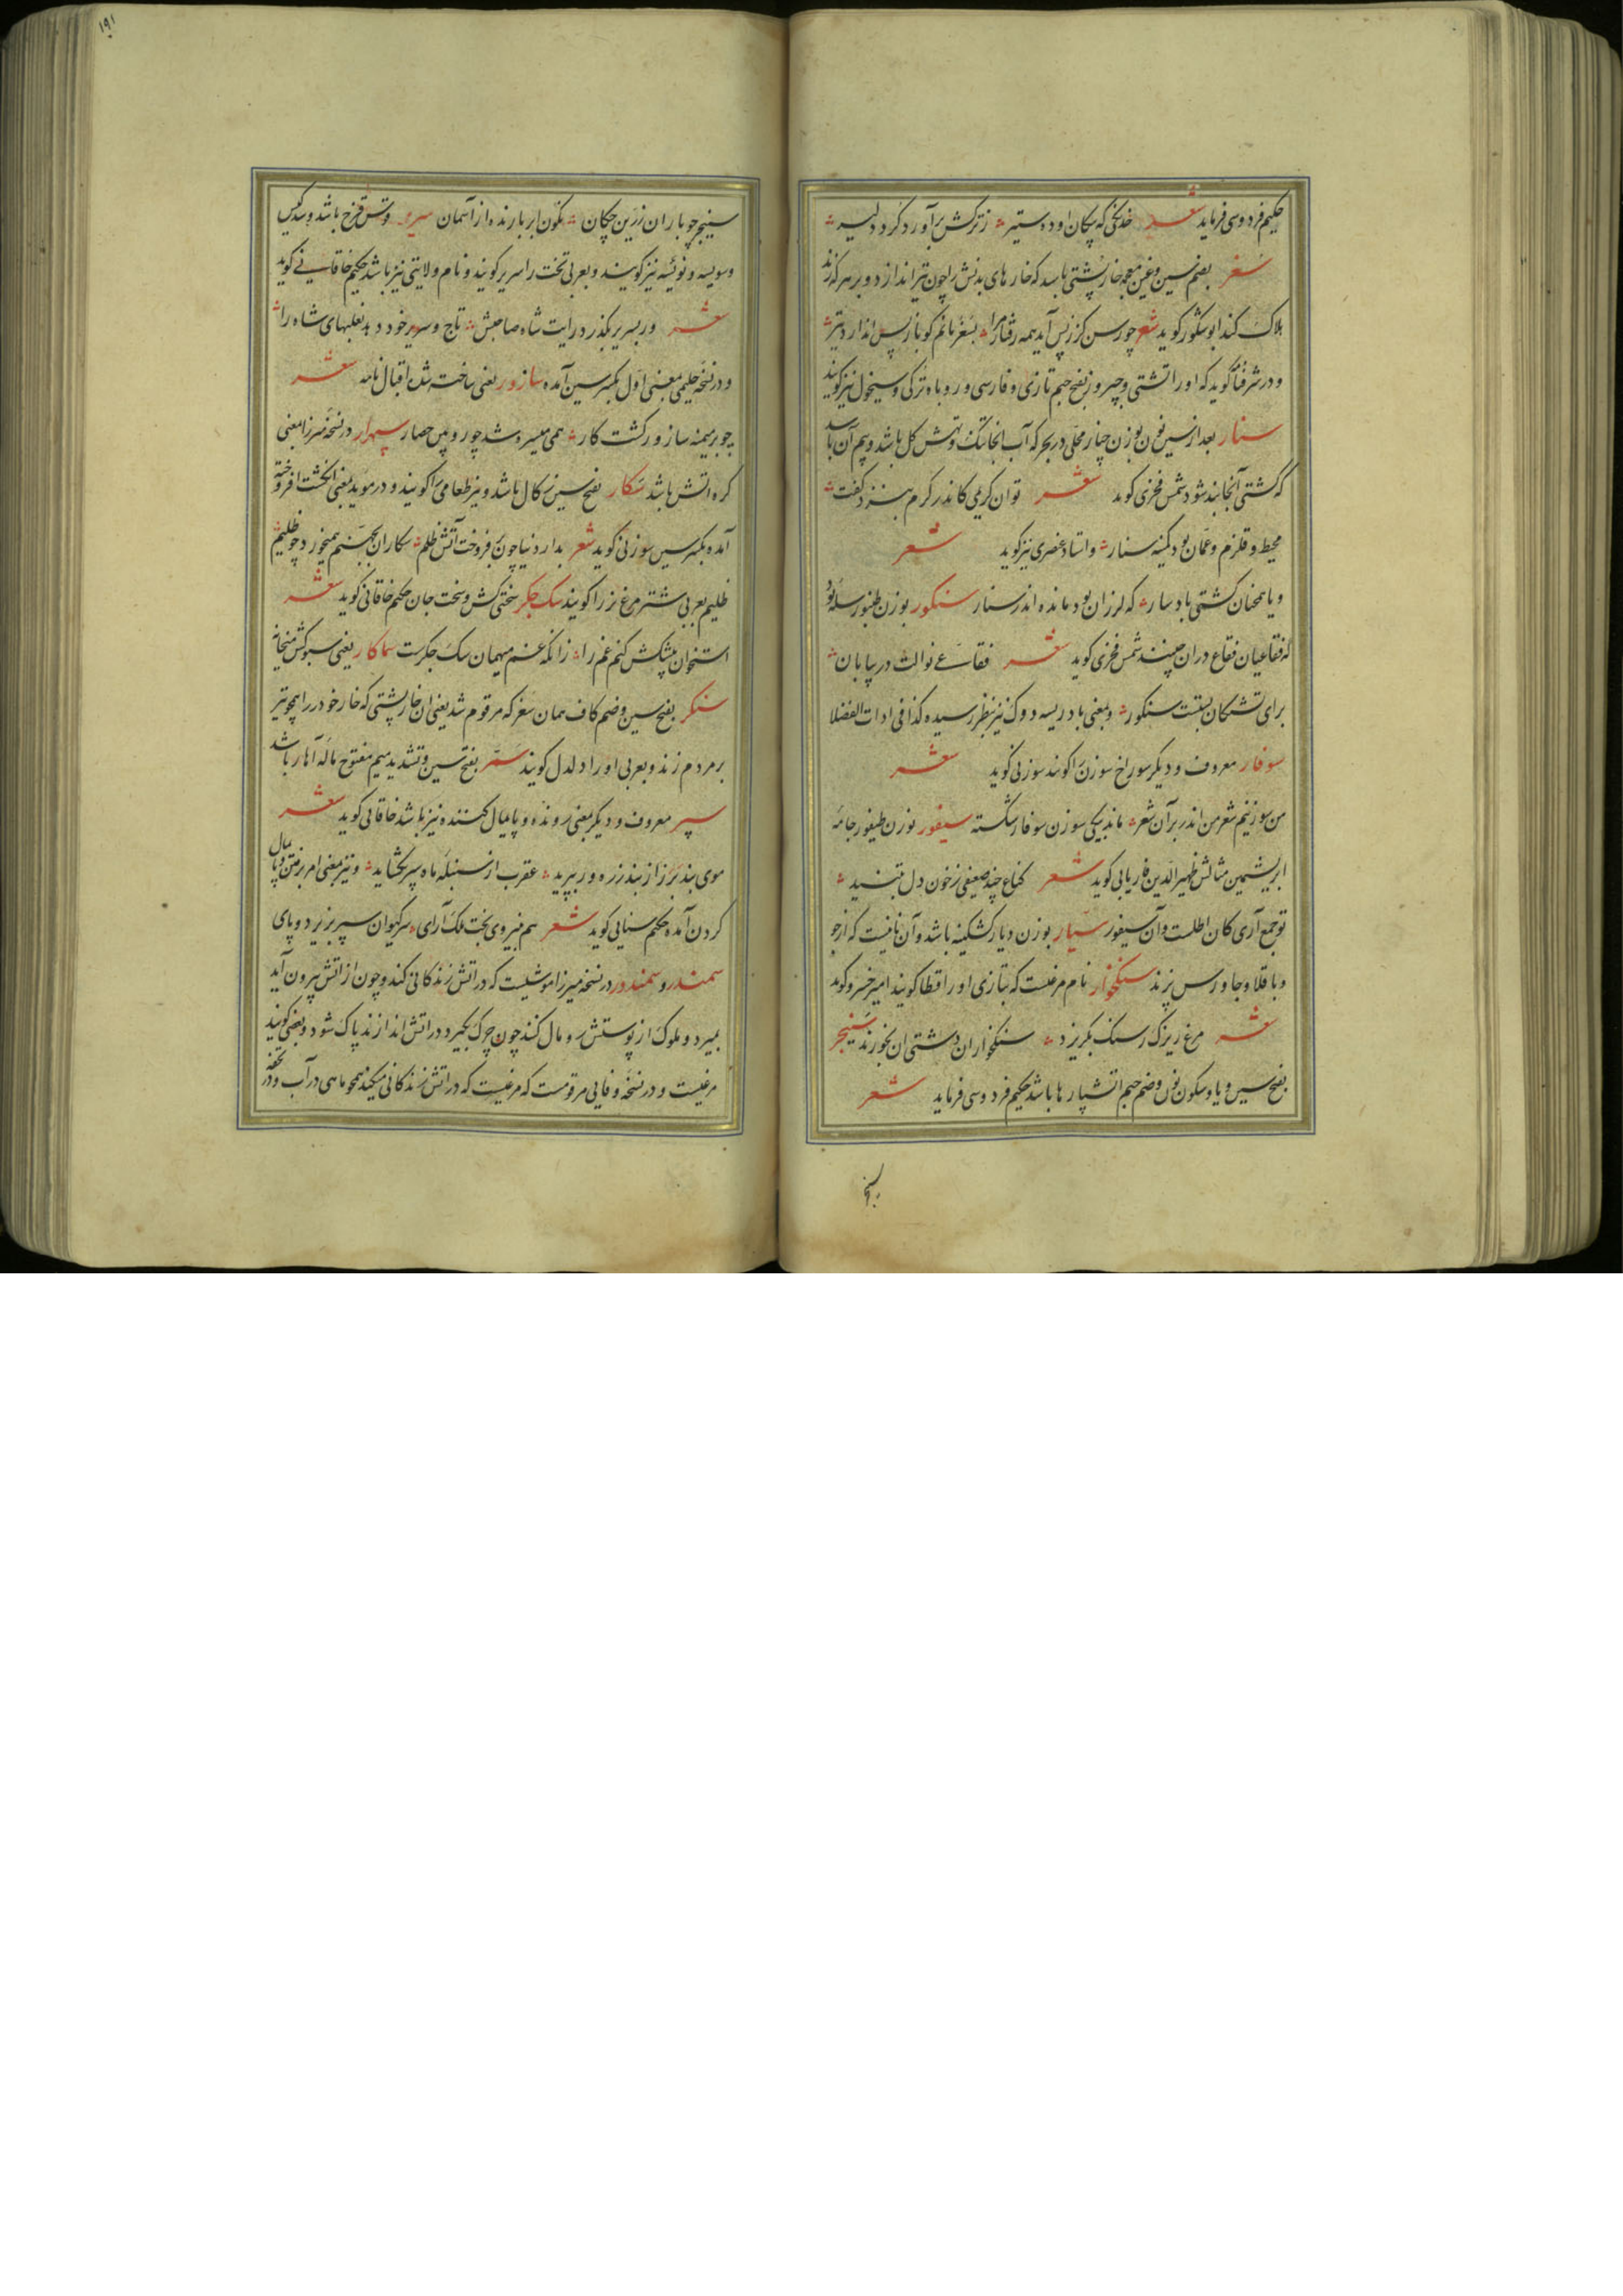 حکیم فردوسی فرماید شعر خدنگی که پیکان او ده ستیر ز ترکش برآورد گرد دلیر
سغر بضم سین و غین معجمه خارپشتی باشد که خارهای بدنش را چون تیر اندازد و بر هر که زند
هلاک کند ابوشکور گوید شعر چو رسن گر ز پس آید همه رفتار مرا بسغر مانم کو باز پس اندازد تیر
و در شرفنامه گوید که او را تشی و بفتح جیم تازی و فارسی و روباه ترکی و سیخول نیز گویند
سنار بعد از سین نون بوزن چنار محلی در بحر که آب آنجا تنک و تهش گل باشد و بیم آن باشد
که کشتی آنجا بند شود شمس فخری گوید شعر توان کریمی کاندر کرم بنزد کفت
محیط و قلزم و عمان بود کمینه سنار و استاد عنصری نیز گوید شعر
و یا همچنان کشتی بادسار که لرزان بود مانده اندر سنار سنکور بوزن طنبور سله بود
که فقاعیان فقاع دران چینند شمس فخری گوید شعر فقاع نوالت در بیابان
برای تشنگان بستست سنکور و بمعنی بادریسه دوک نیز بنظر رسیده کذا فی ادات الفضلا
سوفار معروف و دیگر سوراخ سوزن را گویند سوزنی گوید شعر
من سوزنیم شعر من اندر بر آن شعر ماند بیکی سوزن سوفار شکسته سیفور بوزن طیفور جامه
ابریشمین مثالش ظهیر الدین فاریابی گوید شعر کناغ چند ضعیفی ز خون دل بتنید
تو جمع آری کان اطلست و آن سیفور سیار بوزن دیار کشکینه باشد و آن نانیست که از جو
و باقلا و جاورس پزند سنگخوار نام مرغیست که بتازی او را قطا گویند امیر خسرو گوید
شعر مرغ ریزک ز سنگ بگریزد سنگخواران دشتی ان بخورند سینجر
بفتح سین و یا و سکون نون و ضم جیم آتشپارها باشد حکیم فردوسی فرماید شعر
سینجر
۱۹۱
سینجر چو باران زرین چکان بگون ابر بارنده از آسمان سریر قوس قزح باشد و سدکیس
و سویسه و نوئیسه نیز گویند و بعربی تخت را سریر گویند و نام ولایتی نیز باشد حکیم خاقانی گوید
شعر ور بسریر بگذرد رایت شاه صاحبش تاج و سریر خود دهد نعلبهای شاه را
و در نسخه حلیمی بمعنی اول بکسر سین آمده سازور یعنی ساخته شده اقبال نامه شعر
چو بر میمنه سازور گشت کار همی میسره شد چو رویین حصار سپهرار در نسخه میرزا بمعنی
کره آتش باشد سکار بفتح سین زکال باشد و نیز طعامی را گویند و در موید بمعنی انگشت افروخته
آمده بکسر سین سوزنی گوید شعر بدار دنیا چون بفروخت آتش ظلم سکاران بجهنم همیخورد چو ظلیم
ظلیم بعربی شتر مرغ نر را گویند سک جگر سختی کش و سخت جان حکیم خاقانی گوید شعر
استخوان پیشکش کنم غم را زانکه غم میهمان سک جگرست سماکار یعنی سبوکش میخانه
سنکر بفتح سین و ضم کاف همان سغر که مرقوم شد یعنی ان خارپشتی که خار خود را همچو تیر
بر مردم زند و بعربی او را دلدل گویند سمر بفتح سین و تشدید میم مفتوح ماله آهار باشد
سپر معروف و دیگر بمعنی رونده و پایمال کننده نیز باشد خاقانی گوید شعر
موی بند بزر از بند زره ور ببرید عقرب از سنبله ماه سپر بگشایید و نیز بمعنی امر برفتن و پایمال
کردن آمده حکیم سنایی گوید شعر هم بنیروی بخت ملک آرای سر کیوان سپر بزیر دو پای
سمندر و سمندور در نسخه میرزا موشیست که در آتش زندگانی کند و چون از آتش بیرون آید
بمیرد و ملوک از پوستش رومال کنند چون چرک بگیرد در آتش اندازند پاک شود و بعضی گویند
مرغیست و در نسخه وفایی مرقومست که مرغیست که در آتش زندگانی میکند همچو ماهی در آب و در تحفه